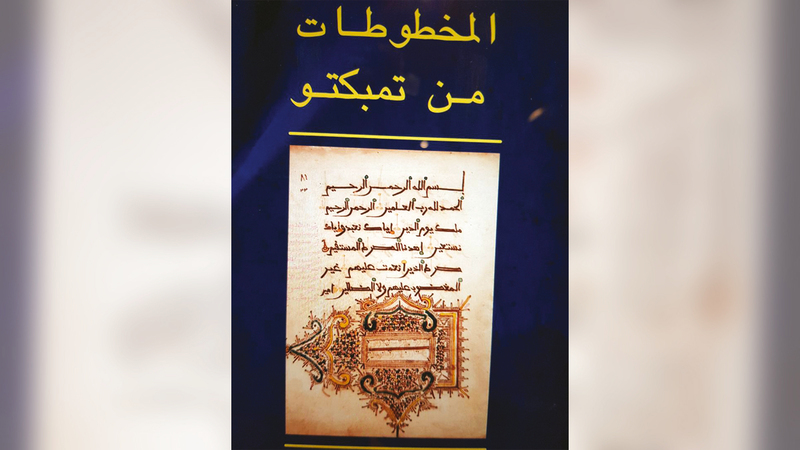 المخطوطات
من تمبكتو
بسم الله الرحمن الرحيم
الحمد لله رب العلمين الرحمن الرحيم
ملك يوم الدين اياك نعبد واياك
نستعين اهدنا الصرط المستقيم
صرط الذين انعمت عليهم غير
المغضوب عليهم ولا الضالين امين